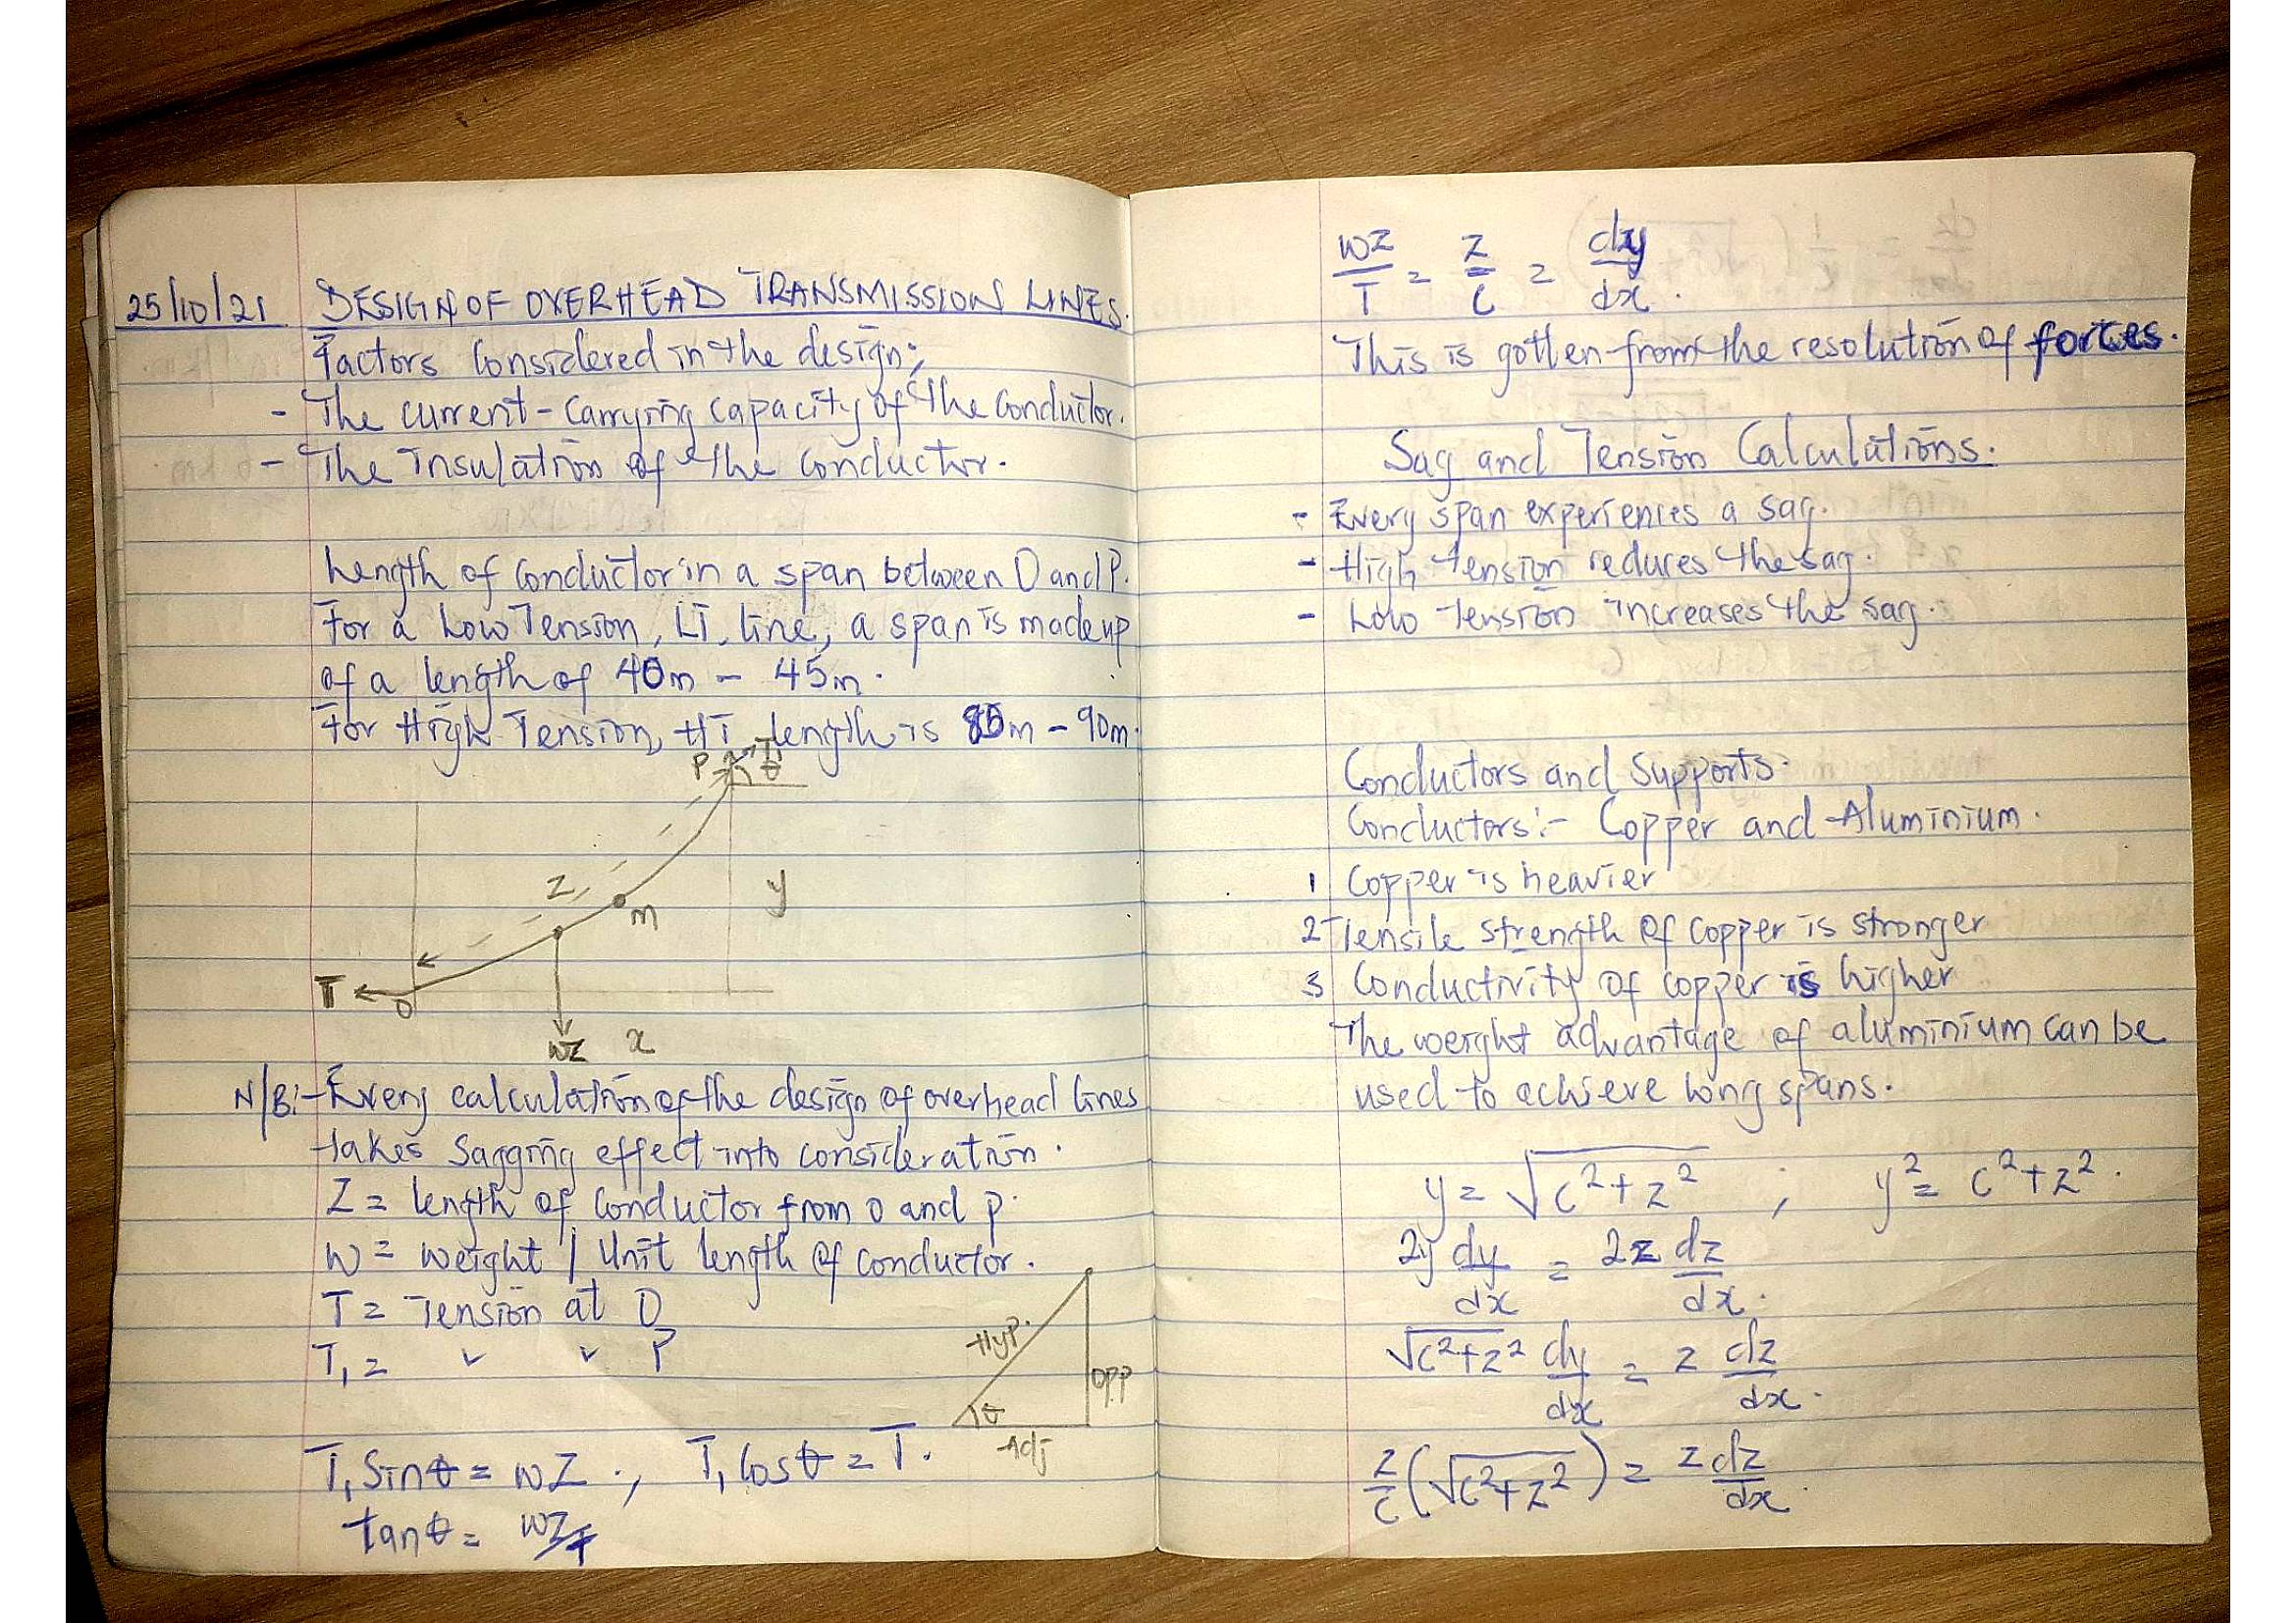 25/10/21 DESIGN OF OVERHEAD TRANSMISSION LINES.
Factors Considered in the design;
- The current-carrying capacity of the conductor.
- The insulation of the conductor.
Length of conductor in a span between O and P.
For a Low Tension, LT, line, a span is made up
of a length of 40m - 45m.
For High Tension, HT length is 85m - 90m.
P T₁ θ
Z
m
y
T O
wz x
N/B:- Every calculation of the design of overhead lines
takes sagging effect into consideration.
Z = length of conductor from O and P.
W = weight / Unit length of conductor.
T = Tension at O
T₁ = " " P
Hyp. Opp
θ Adj
T₁ Sinθ = wZ ; T₁ Cosθ = T.
tanθ = wZ/T
wz/T = z/c = dy/dx.
This is gotten from the resolution of forces.
Sag and Tension Calculations.
- Every span experiences a sag.
- High tension reduces the sag.
- Low tension increases the sag.
Conductors and Supports.
Conductors:- Copper and Aluminium.
1 Copper is heavier
2 Tensile strength of copper is stronger
3 Conductivity of copper is higher
The weight advantage of aluminium can be
used to achieve long spans.
y = √(c² + z²) ; y² = c² + z².
2y dy/dx = 2z dz/dx.
√(c² + z²) dy/dx = z dz/dx.
z/c (√(c² + z²)) = z dz/dx.